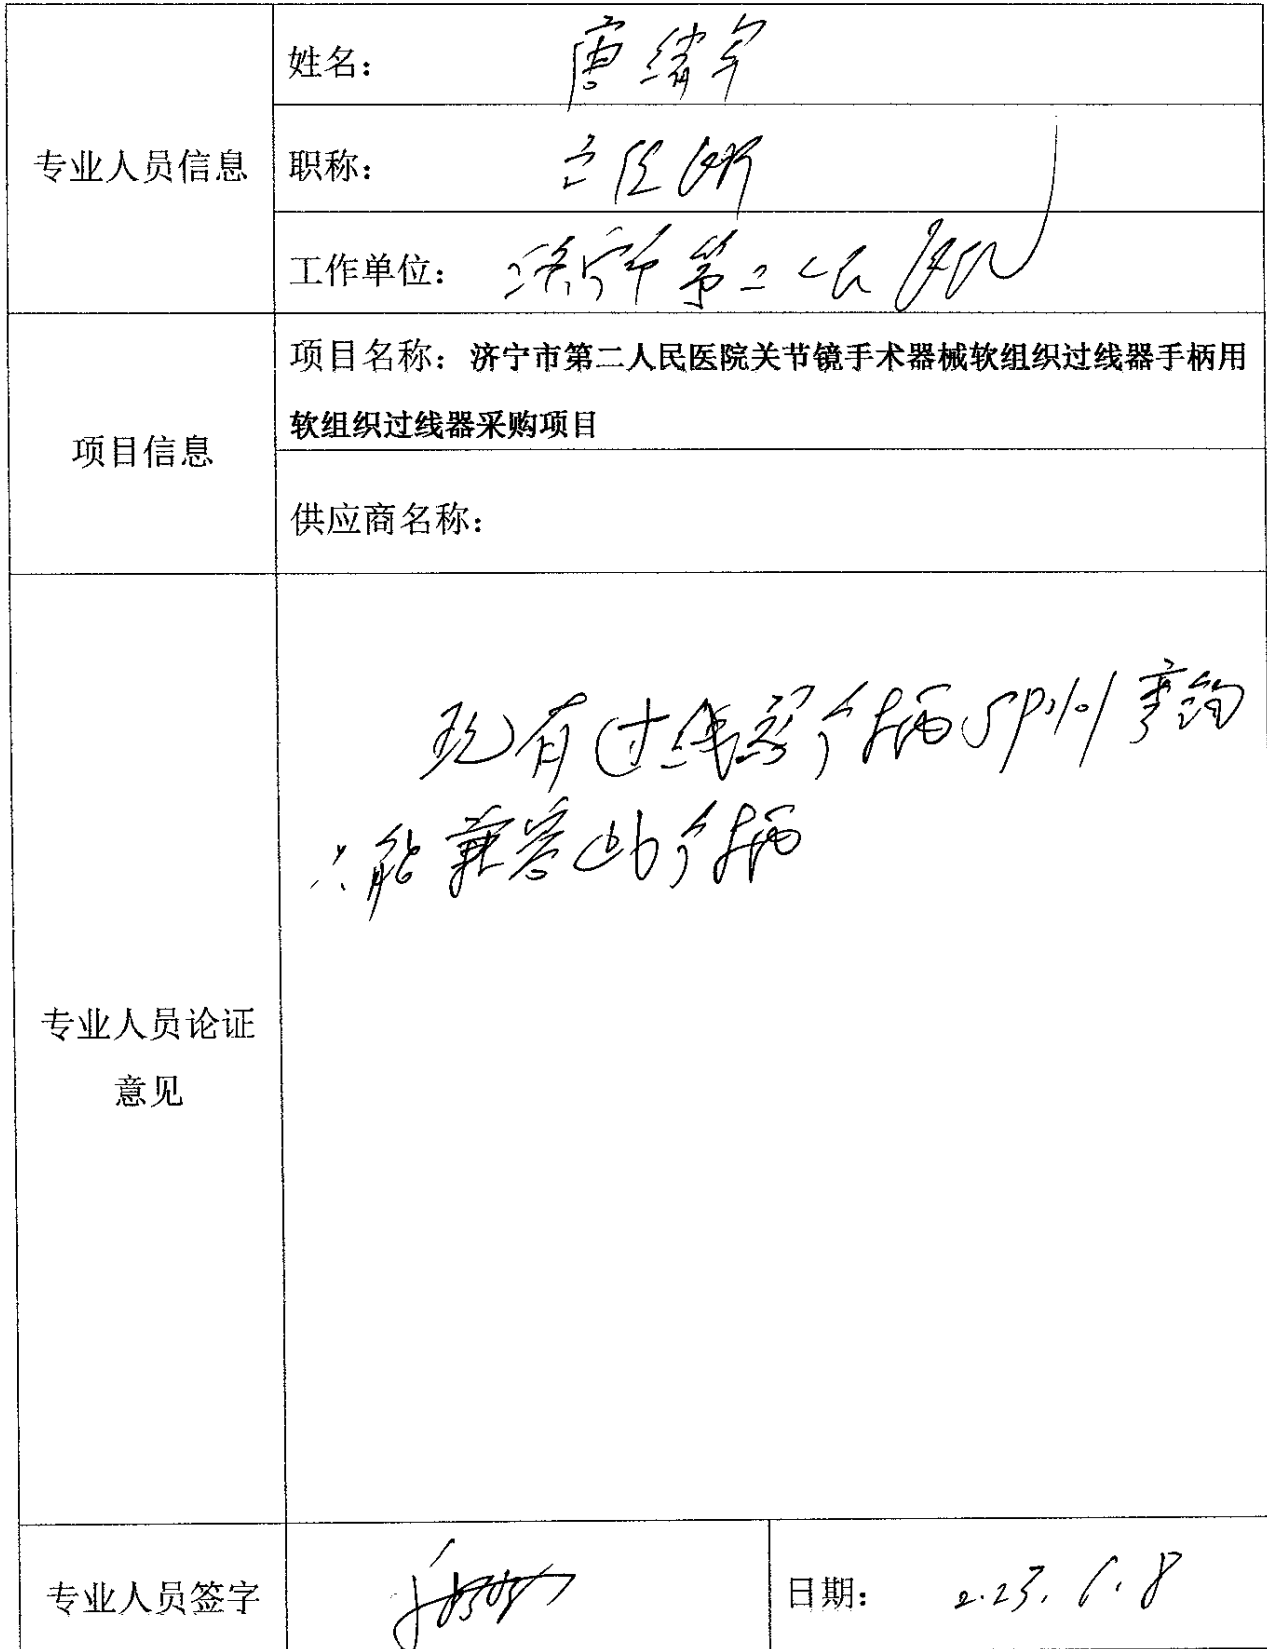 专业人员信息
姓名：唐绪军
职称：主任医师
工作单位：济宁市第二人民医院
项目信息
项目名称：济宁市第二人民医院关节镜手术器械软组织过线器手柄用
软组织过线器采购项目
供应商名称：
专业人员论证
意见
现有过线器手柄 弯钩
只能兼容此手柄
专业人员签字
日期：2023.6.8